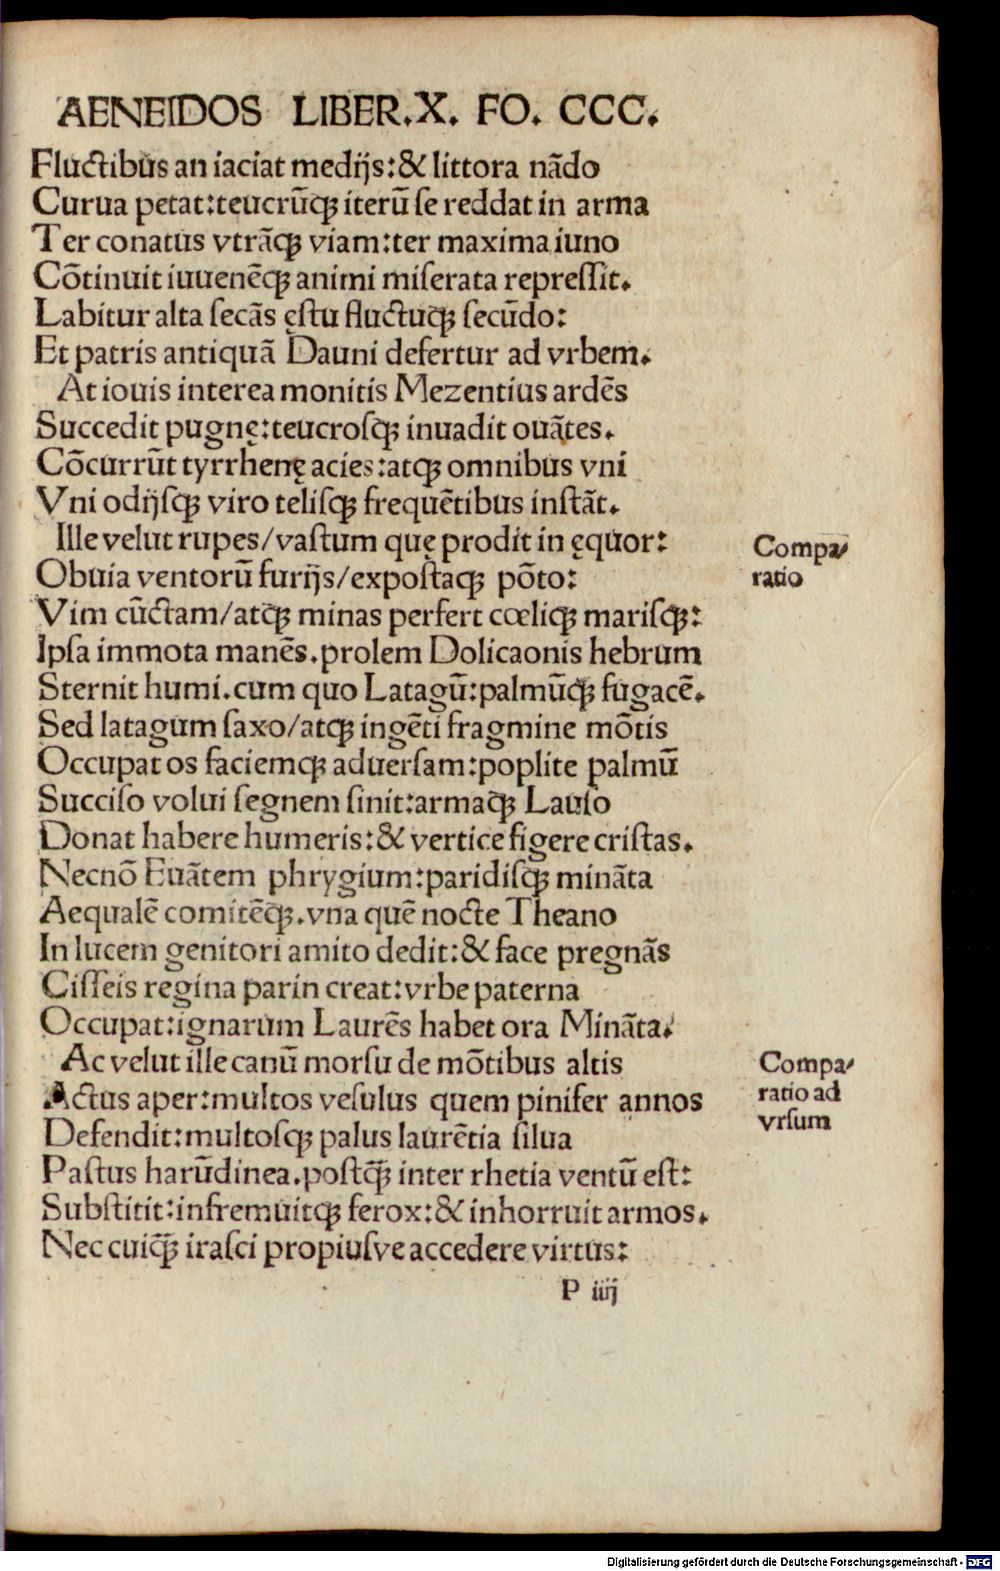 AENEIDOS LIBER.X. FO. CCC.
Fluctibus an iaciat medijs:& littora nãdo
Curua petat:teucrũqꝫ iterũ ſe reddat in arma
Ter conatus vtrãqꝫ viam:ter maxima iuno
Cõtinuit iuuenẽqꝫ animi miſerata repreſſit.
Labitur alta ſecãs ęſtu fluctuqꝫ ſecũdo:
Et patris antiquã Dauni defertur ad vrbem.
At iouis interea monitis Mezentius ardẽs
Succedit pugnę:teucroſqꝫ inuadit ouãtes.
Cõcurrũt tyrrhenę acies:atqꝫ omnibus vni
Vni odijſqꝫ viro teliſqꝫ frequẽtibus inſtãt.
Ille velut rupes/vaſtum quę prodit in ęquor:
Obuia ventorũ furijs/expoſtaqꝫ põto:
Vim cũctam/atqꝫ minas perfert cœliqꝫ mariſqꝫ:
Ipſa immota manẽs.prolem Dolicaonis hebrum
Sternit humi.cum quo Latagũ:palmũqꝫ fugacẽ.
Sed latagum ſaxo/atqꝫ ingẽti fragmine mõtis
Occupat os faciemqꝫ aduerſam:poplite palmũ
Succiſo volui ſegnem ſinit:armaqꝫ Lauſo
Donat habere humeris:& vertice figere criſtas.
Necnõ Euãtem phrygium:paridiſqꝫ minãta
Aequalẽ comitẽqꝫ.vna quẽ nocte Theano
In lucem genitori amito dedit:& face pregnãs
Ciſſeis regina parin creat:vrbe paterna
Occupat:ignarum Laurẽs habet ora Minãta.
Ac velut ille canũ morſu de mõtibus altis
Actus aper:multos veſulus quem pinifer annos
Defendit:multoſqꝫ palus laurẽtia ſilua
Paſtus harũdinea.poſtq̃ꝫ inter rhetia ventũ eſt:
Subſtitit:infremuitqꝫ ferox:& inhorruit armos.
Nec cuiq̃ꝫ iraſci propiuſve accedere virtus:
P iiij
Compa/
ratio
Compa/
ratio ad
vrſum
Digitalisierung gefördert durch die Deutsche Forschungsgemeinschaft - DFG